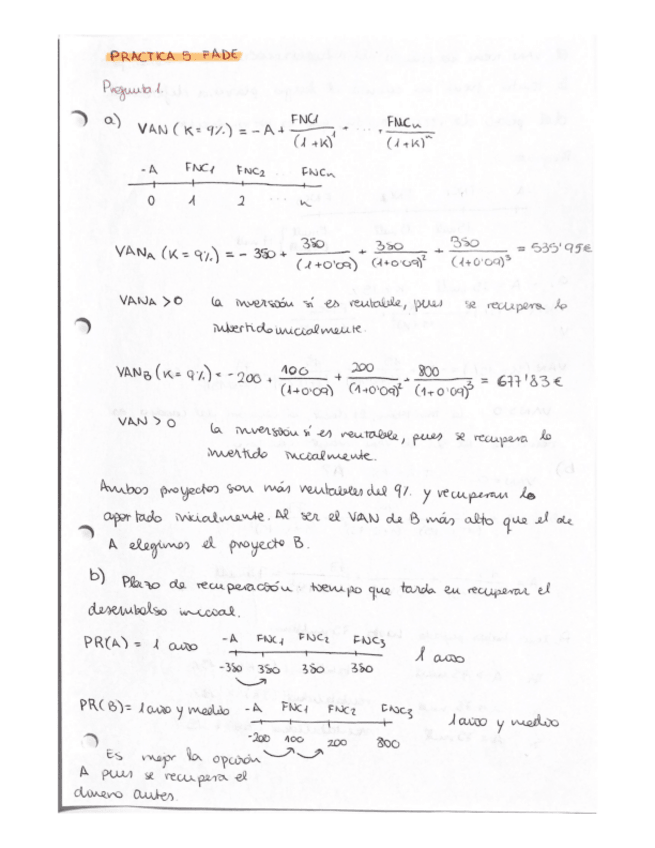 PRACTICA 5 FADE
Pregunta 1.
a) VAN (K = 9%) = -A + FNC1/(1+K)^1 + ... + FNCn/(1+K)^n
-A FNC1 FNC2 FNCn
0 1 2 n
VANA (K = 9%) = - 350 + 350/(1+0'09) + 350/(1+0'09)^2 + 350/(1+0'09)^3 = 535'95€
VANA > 0 la inversión sí es rentable, pues se recupera lo
invertido inicialmente.
VANB (K = 9%) = -200 + 100/(1+0'09) + 200/(1+0'09)^2 + 800/(1+0'09)^3 = 677'83€
VAN > 0 la inversión sí es rentable, pues se recupera lo
invertido inicialmente.
Ambos proyectos son más rentables del 9% y recuperan lo
aportado inicialmente. Al ser el VAN de B más alto que el de
A elegimos el proyecto B.
b) Plazo de recuperación tiempo que tarda en recuperar el
desembolso inicial.
PR(A) = 1 año -A FNC1 FNC2 FNC3 1 año
-350 350 350 350
PR(B) = 1 año y medio -A FNC1 FNC2 FNC3 1 año y medio
-200 100 200 800
Es mejor la opción
A pues se recupera el
dinero antes.